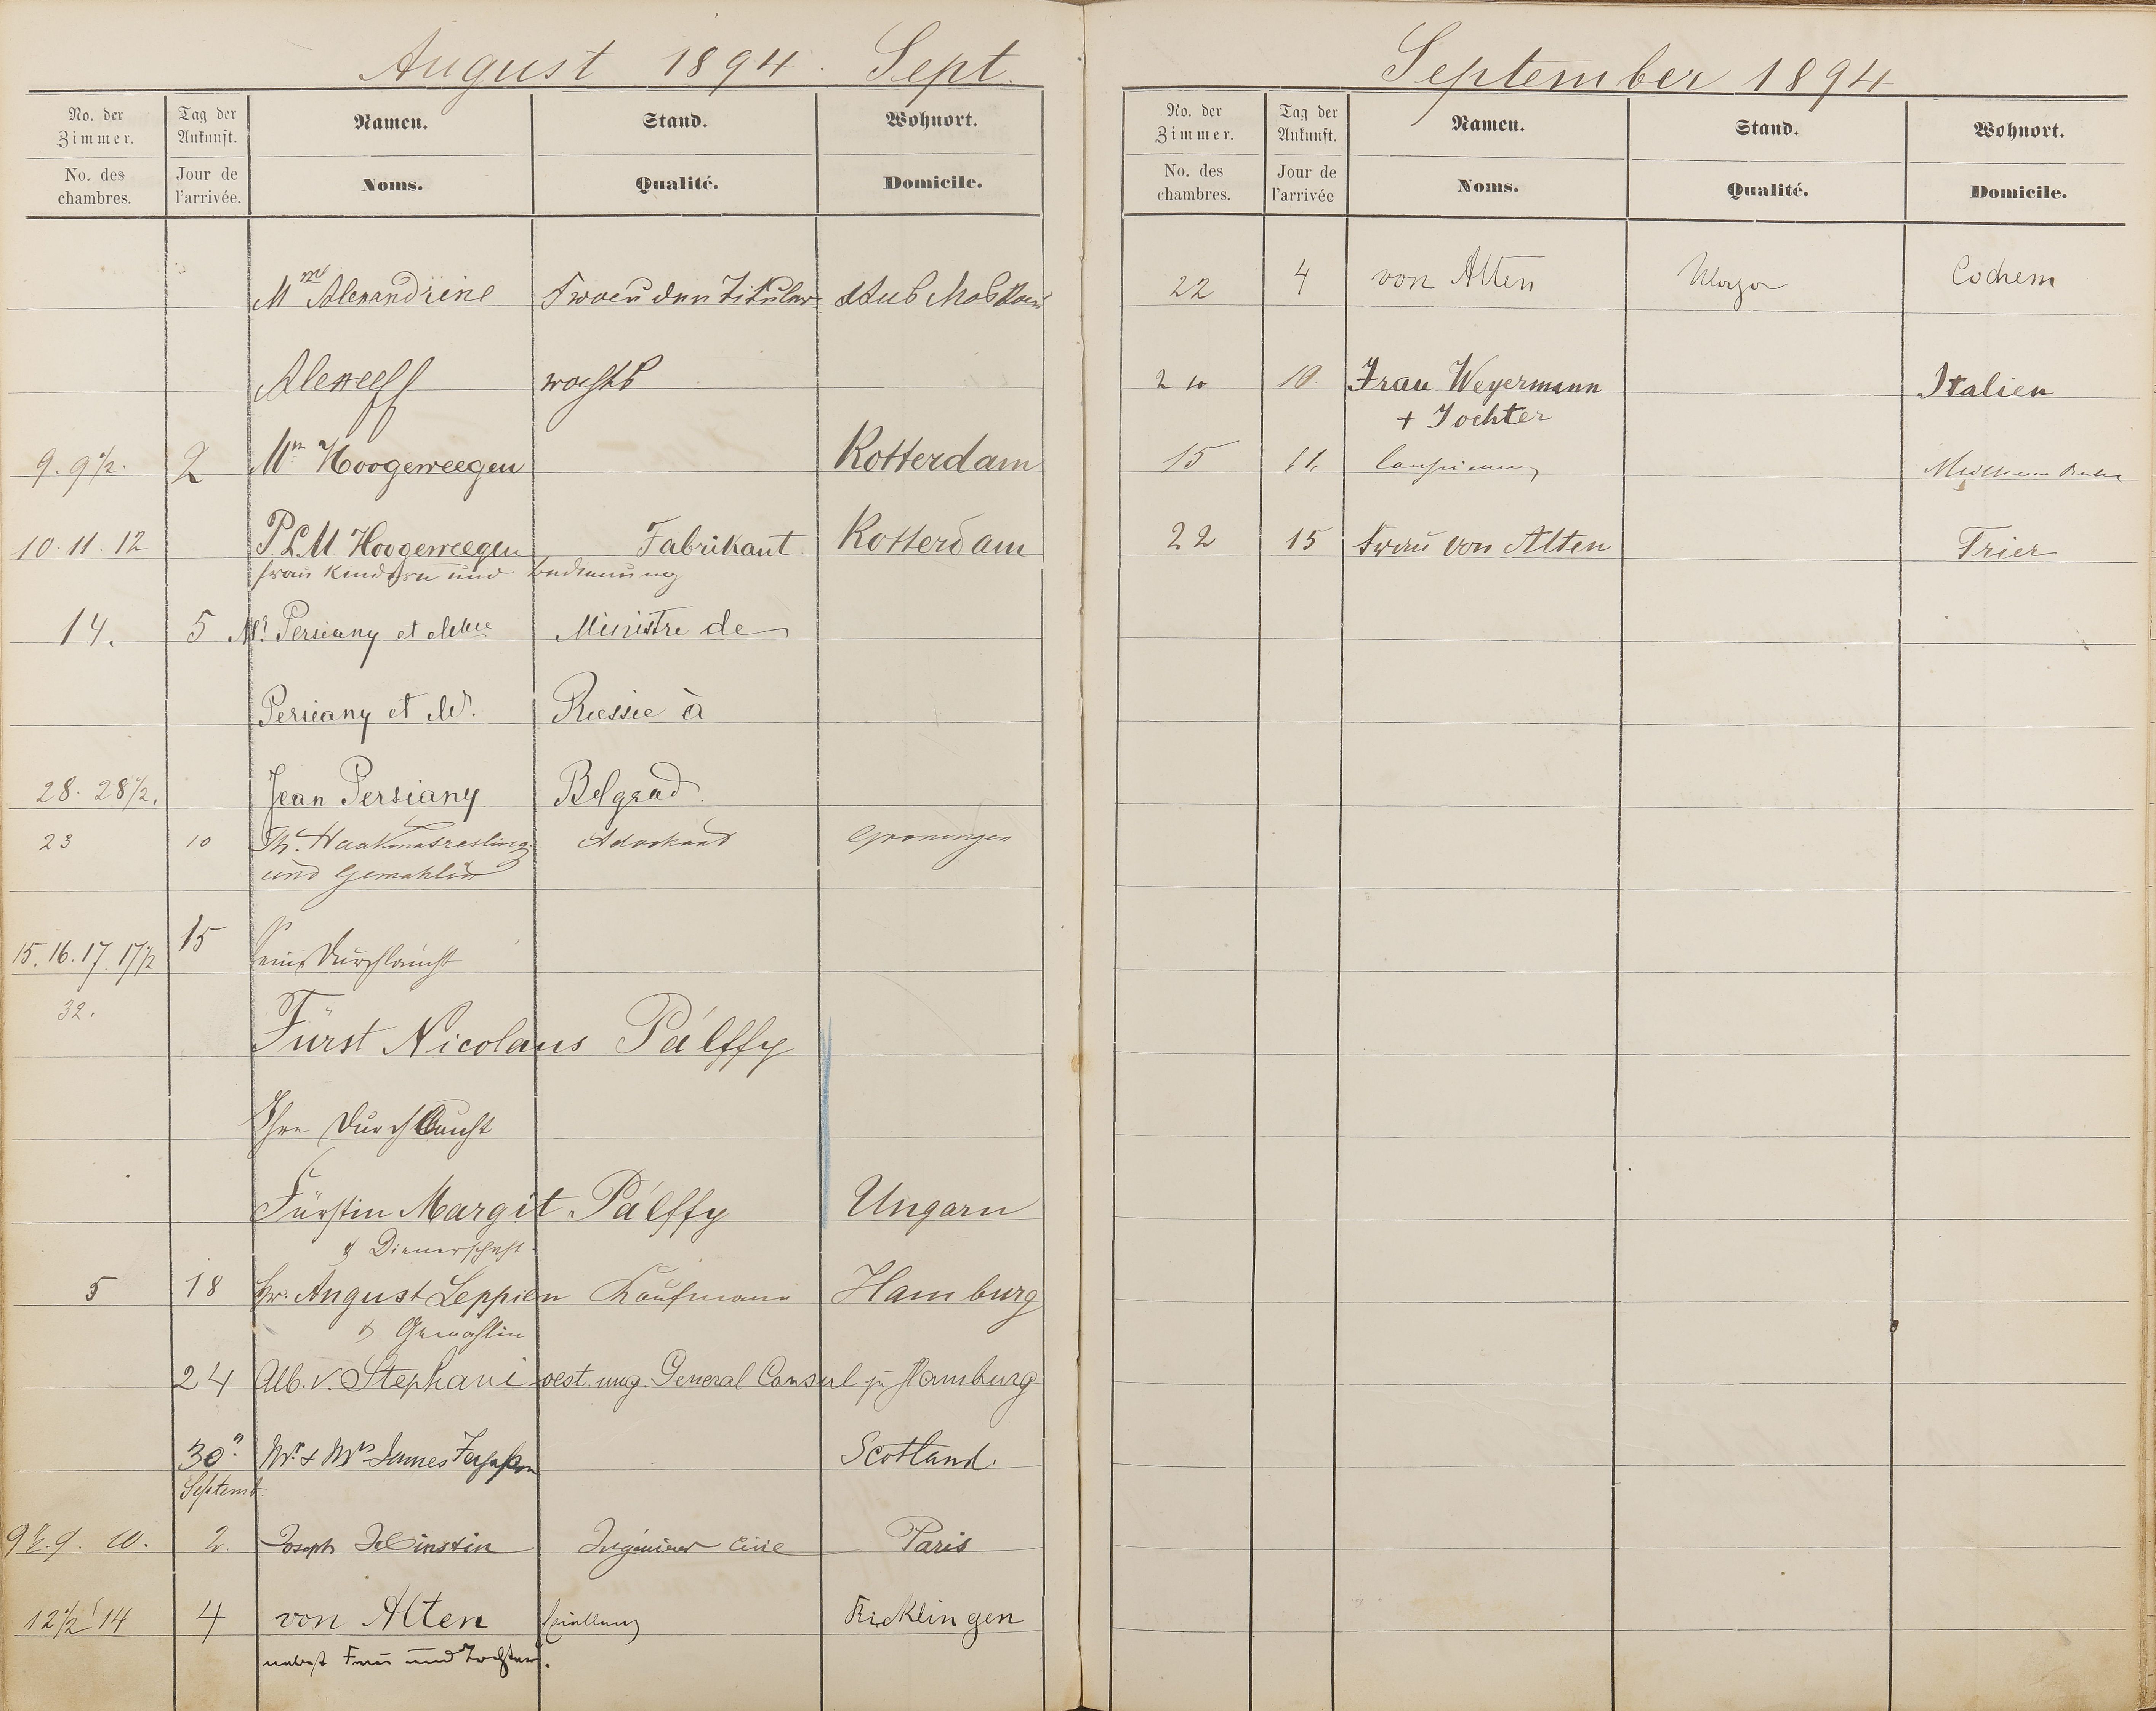 August 1894. Sept.
No. der Zimmer. Tag der Ankunft. Namen. Stand. Wohnort.
No. des chambres. Jour de l'arrivée. Noms. Qualité. Domicile.
Mme Alexandrine Frau den Titular aus Moskau
Alexeeff
9. 9½. 2 Mr Hoogeweegen Rotterdam
10. 11. 12 P.L.M Hoogeweegen Fabrikant Rotterdam
frau Kindern und bedienung
14. 5 Mr. Persiany et Mme Ministre de
Persiany et Mr. Russie à
28. 28½. Jean Persiany Belgrad.
23 10 Th. Advokaat Groningen
und Gemahlin
15. 16. 17. 17½ 15 Seine Durchlaucht
32.
Fürst Nicolaus Pálffy
Ihre Durchlaucht
Fürstin Margit Pálffy Ungarn
& Dienerschaft
5 18 Hr. August Leppien Kaufmann Hamburg
& Gemahlin
24 Alb. v. Stephani oest. ung. General Consul zu Hamburg
30. Mr & Mrs James Scotland.
Septemb.
9½. 9. 10. 2. Joseph Ingénieur Civil Paris
12½ 14 4 von Alten Ricklingen
nebst Frau und Tochter.
September 1894
No. der Zimmer. Tag der Ankunft. Namen. Stand. Wohnort.
No. des chambres. Jour de l'arrivée Noms. Qualité. Domicile.
22 4 von Alten Major Cochem
20 10. Frau Weyermann Italien
+ Tochter
15 11. Mülheim Ruhr
22 15 Frau von Alten Trier